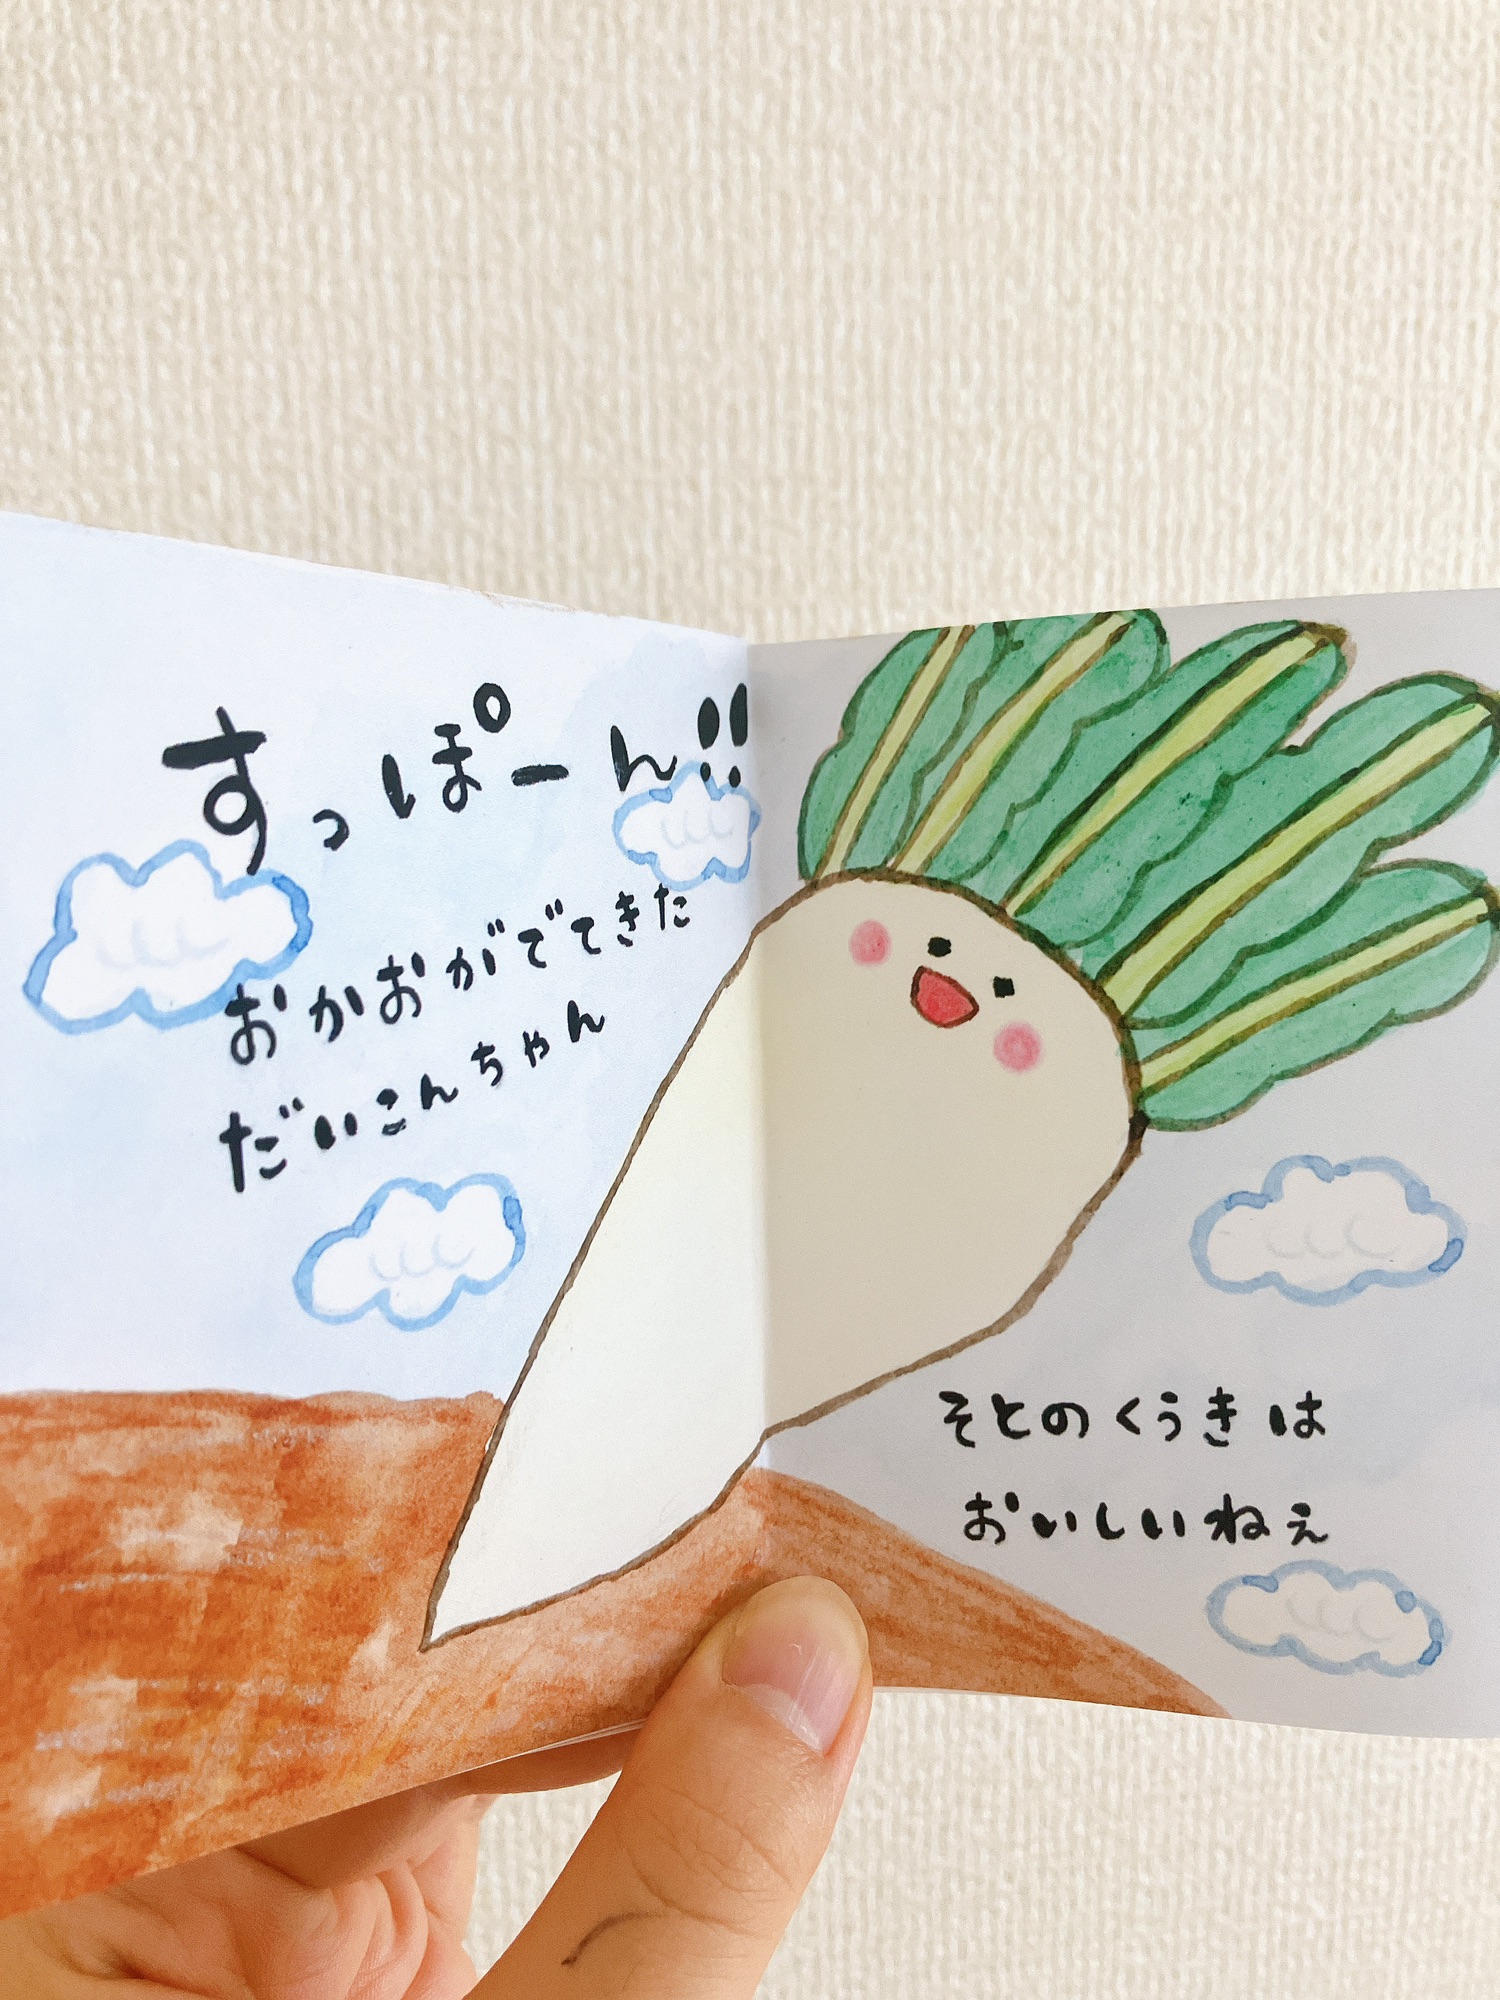 すっぽーん!!
おかおがでてきた
だいこんちゃん
そとのくうきは
おいしいねぇ